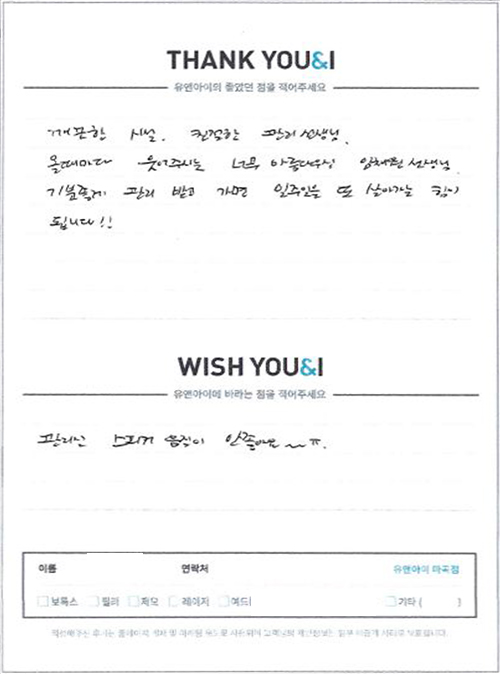 THANK YOU&I
유앤아이의 좋았던 점을 적어주세요
깨끗한 시설. 친절한 관리선생님.
올때마다 웃어주시는 너무 아름다우신 선생님.
기분좋게 관리 받고 가면 일주일을 또 살아가는 힘이
됩니다!!
WISH YOU&I
유앤아이에 바라는 점을 적어주세요
관리실 스피커 음질이 안좋아요 ~ ㅠ.
이름 연락처 유앤아이 마곡점
보톡스 필러 제모 레이저 여드름
기타 ( )